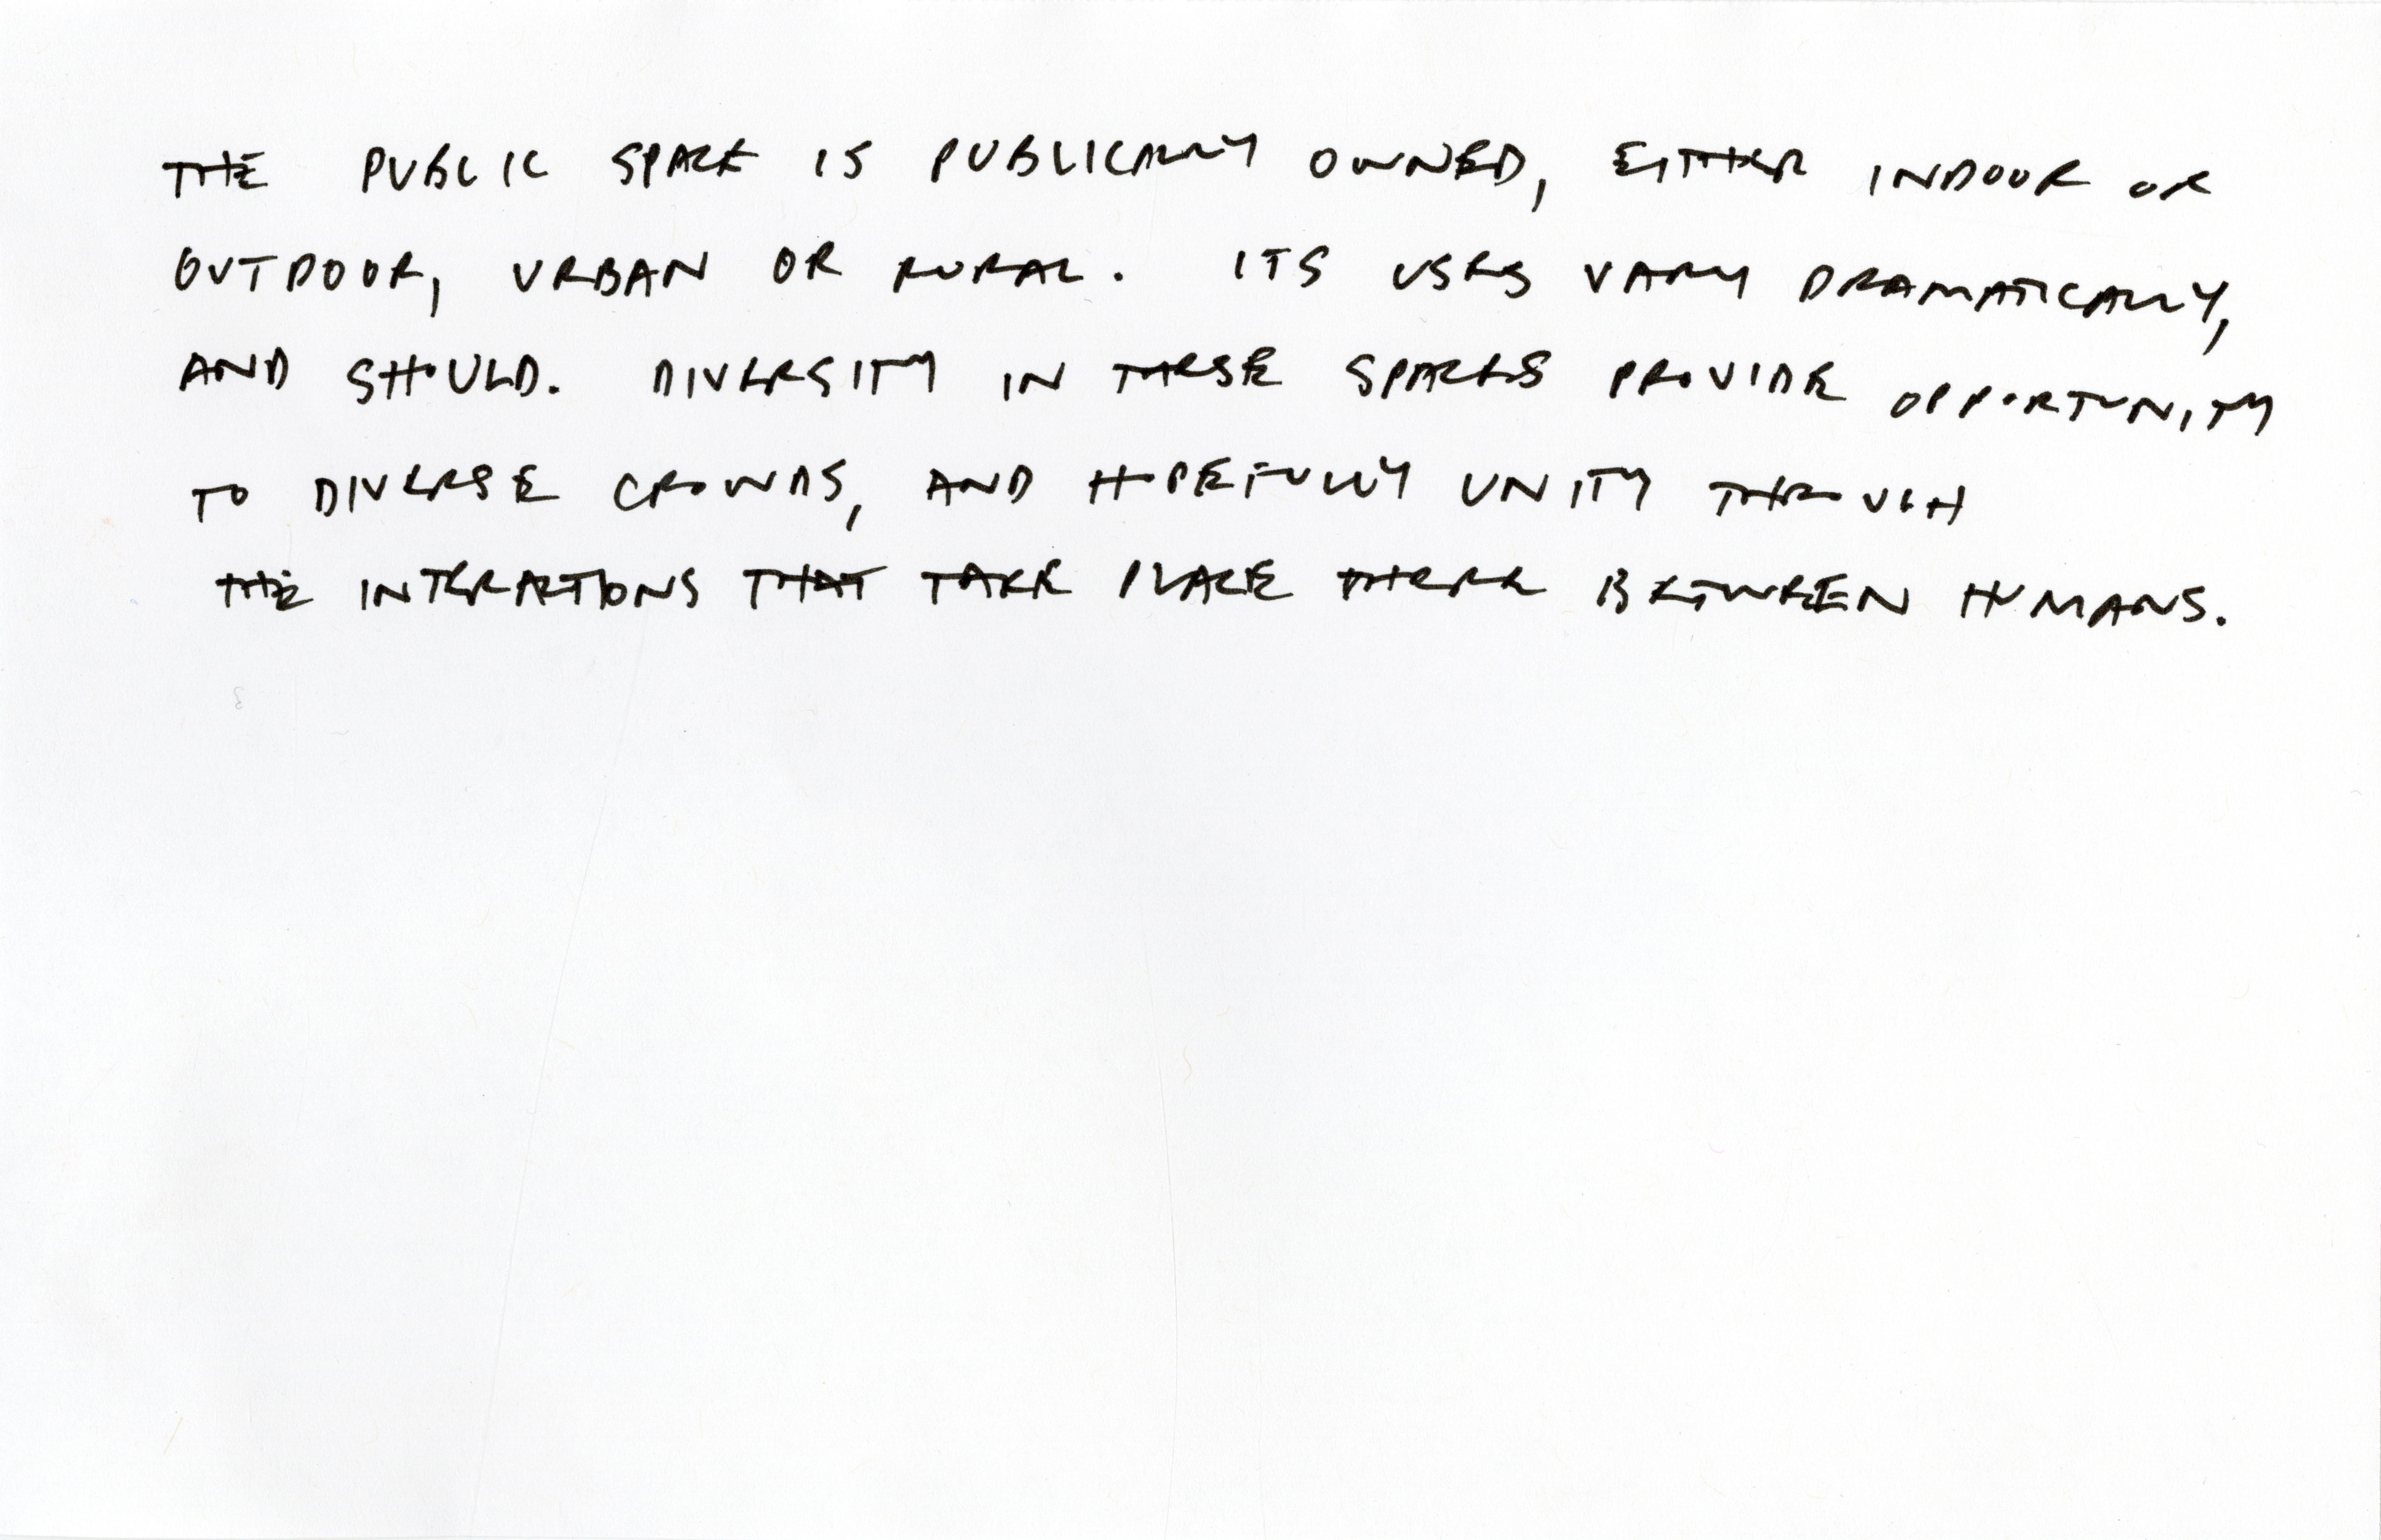 THE PUBLIC SPACE IS PUBLICALLY OWNED, EITHER INDOOR OR
OUTDOOR, URBAN OR RURAL. ITS USES VARY DRAMATICALLY,
AND SHOULD. DIVERSITY IN THESE SPACES PROVIDE OPPORTUNITY
TO DIVERSE CROWDS, AND HOPEFULLY UNITY THROUGH
THE INTERACTIONS THAT TAKE PLACE THERE BETWEEN HUMANS.